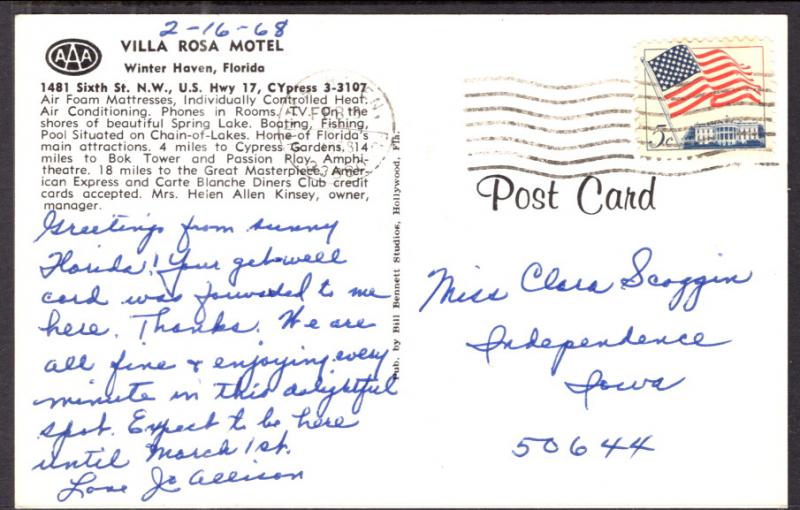 2-16-68
AAA
VILLA ROSA MOTEL
Winter Haven, Florida
1481 Sixth St. N.W., U.S. Hwy 17, CYpress 3-3107
Air Foam Mattresses, Individually Controlled Heat.
Air Conditioning. Phones in Rooms. TV. On the
shores of beautiful Spring Lake. Boating, Fishing,
Pool Situated on Chain-of-Lakes. Home of Florida's
main attractions. 4 miles to Cypress Gardens. 14
miles to Bok Tower and Passion Play. Amphi-
theatre. 18 miles to the Great Masterpiece. Amer-
ican Express and Carte Blanche Diners Club credit
cards accepted. Mrs. Helen Allen Kinsey, owner,
manager.
Greetings from sunny
Florida! Your get-well
card was forwarded to me
here. Thanks. We are
all fine & enjoying every
minute in this delightful
spot. Expect to be here
until March 1st.
Love Jo Allison
Pub. by Bill Bennett Studios, Hollywood, Fla.
FEB
5c
Post Card
Miss Clara Scoggin
Independence
Iowa
50644